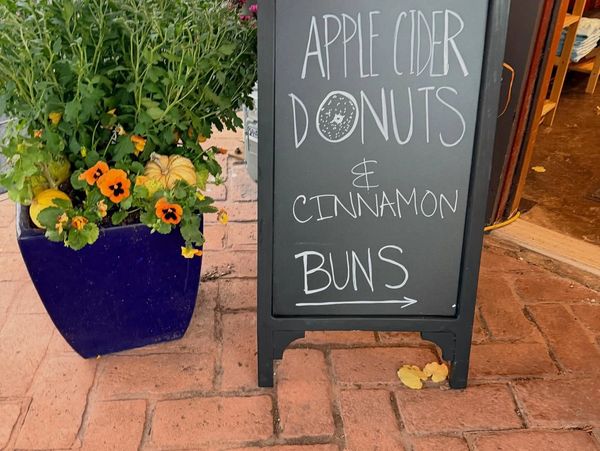 APPLE CIDER
DONUTS
&
CINNAMON
BUNS